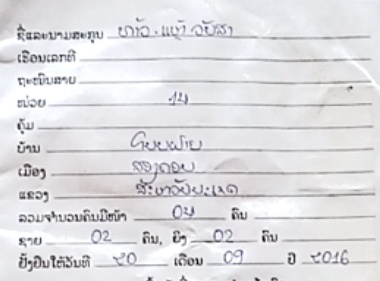 ຊື່ແລະນາມສະກຸນ ທ້າວ
ເຮືອນເລກທີ
ຖະໜົນສາຍ
ໜ່ວຍ 14
ຄຸ້ມ
ບ້ານ
ເມືອງ ສອງຄອນ
ແຂວງ ສະຫວັນນະເຂດ
ລວມຈຳນວນຄົນມີໜ້າ 04 ຄົນ
ຊາຍ 02 ຄົນ, ຍິງ 02 ຄົນ
ຢັ້ງຢືນໃຫ້ວັນທີ 20 ເດືອນ 09 ປີ 2016